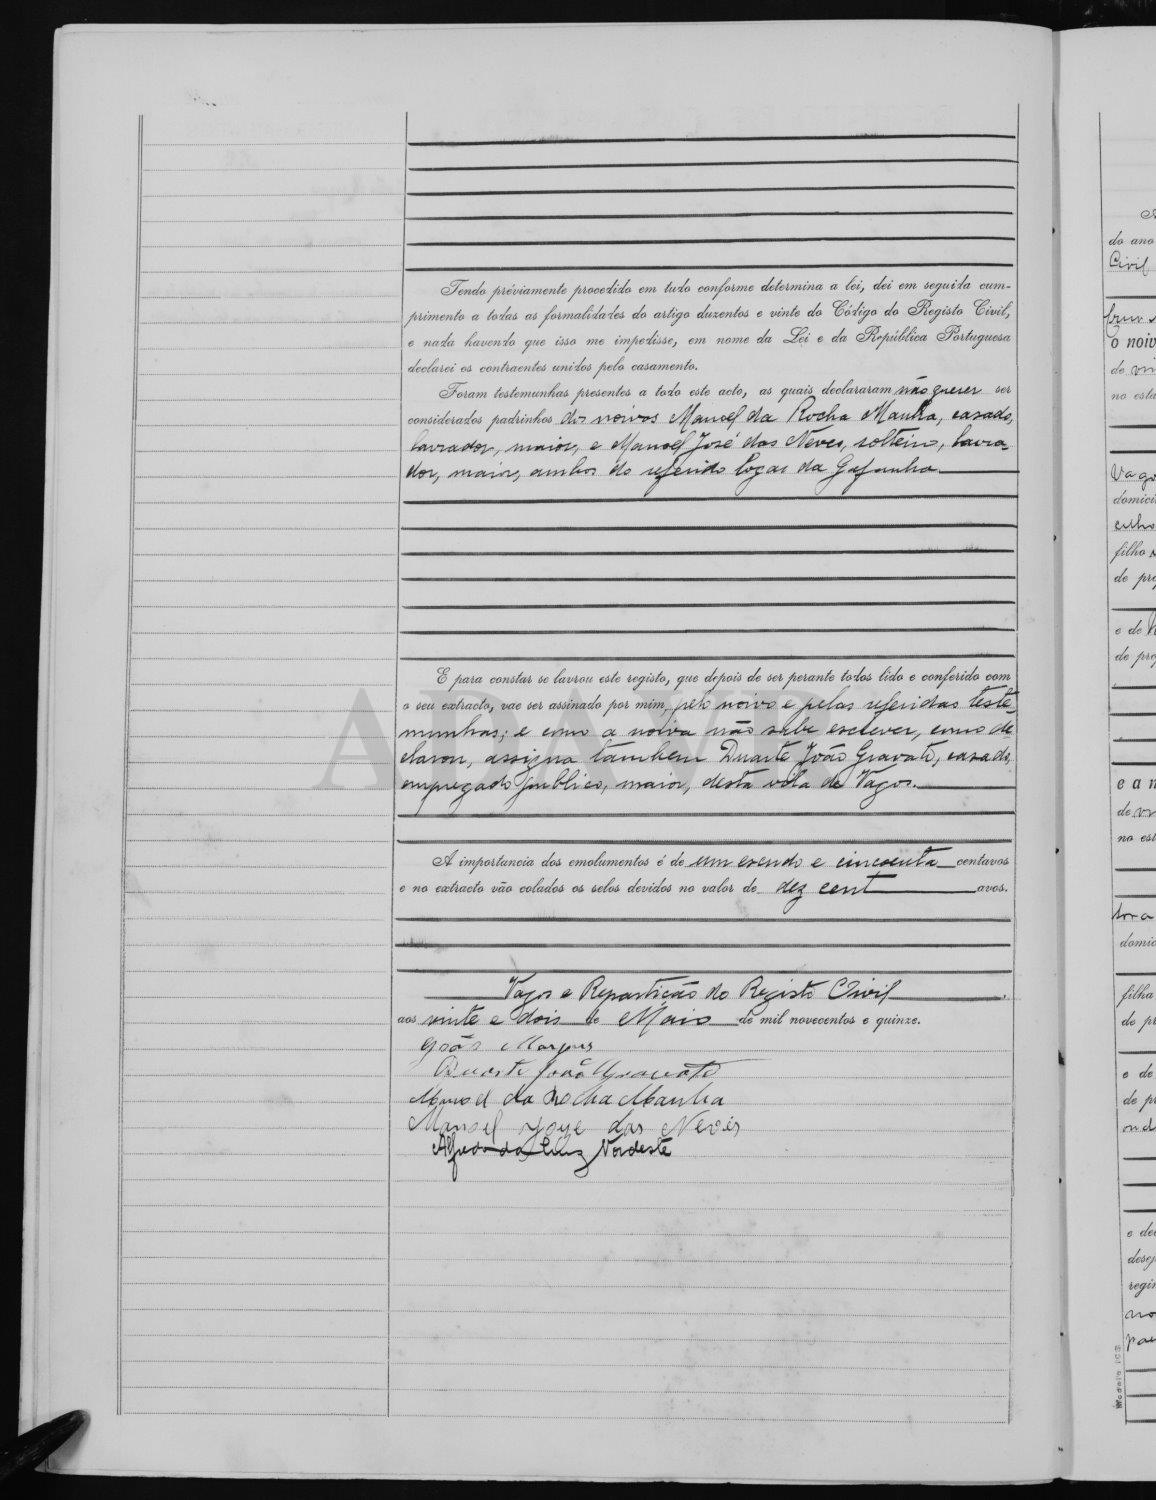 Tendo préviamente procedido em tudo conforme determina a lei, dei em seguida cum-
primento a todas as formalidades do artigo duzentos e vinte do Código do Registo Civil,
e nada havendo que isso me impedisse, em nome da Lei e da República Portuguesa
declarei os contraentes unidos pelo casamento.
Foram testemunhas presentes a todo este acto, as quais declararam não querer ser
considerados padrinhos dos noivos Manoel da Rocha Manha, casado,
lavrador, maior, e Manoel José das Neves, solteiro, lavra-
dor, maior, ambos do referido logar da Gafanha
E para constar se lavrou este registo, que depois de ser perante todos lido e conferido com
o seu extracto, vae ser assinado por mim, pelo noivo e pelas referidas teste-
munhas; e como a noiva não sabe escrever, como de-
clarou, assigna tambem Duarte João Gravato, casado,
empregado publico, maior, desta vila de Vagos.
A importancia dos emolumentos é de um escudo e cincoenta centavos
e no extracto vão colados os selos devidos no valor de dez cent avos.
Vagos e Repartição do Registo Civil
aos vinte e dois de Maio de mil novecentos e quinze.
João Marques
Duarte João Gravato
Manoel da Rocha Manha
Manoel Jose das Neves
Nordeste
ADAVR
do ano
Civil
o noiv
de
no esta
Vagos
domici
filho
de pro
e de
de pro
e a n
de
no est
domic
filha
de pr
e de
de p
e de
desej
regi
Modelo